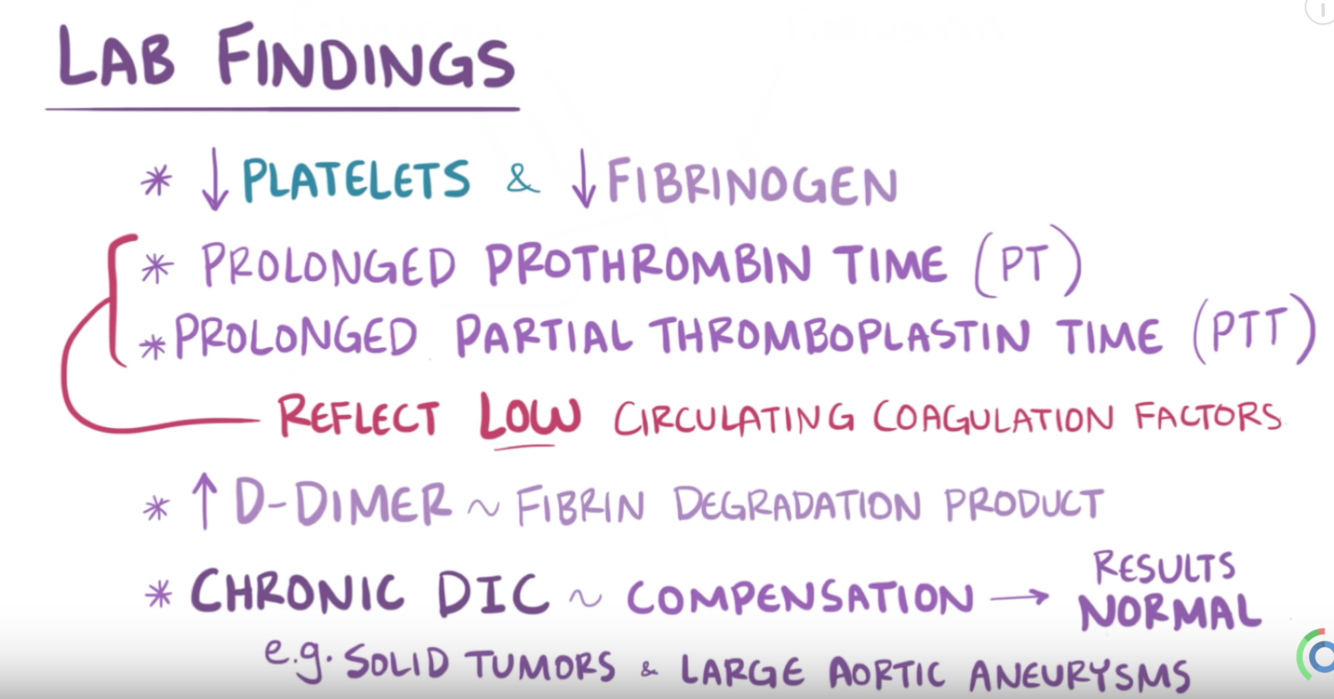 LAB FINDINGS
* ↓ PLATELETS & ↓ FIBRINOGEN
* PROLONGED PROTHROMBIN TIME (PT)
* PROLONGED PARTIAL THROMBOPLASTIN TIME (PTT)
REFLECT LOW CIRCULATING COAGULATION FACTORS
* ↑ D-DIMER ~ FIBRIN DEGRADATION PRODUCT
* CHRONIC DIC ~ COMPENSATION → RESULTS NORMAL
e.g. SOLID TUMORS & LARGE AORTIC ANEURYSMS